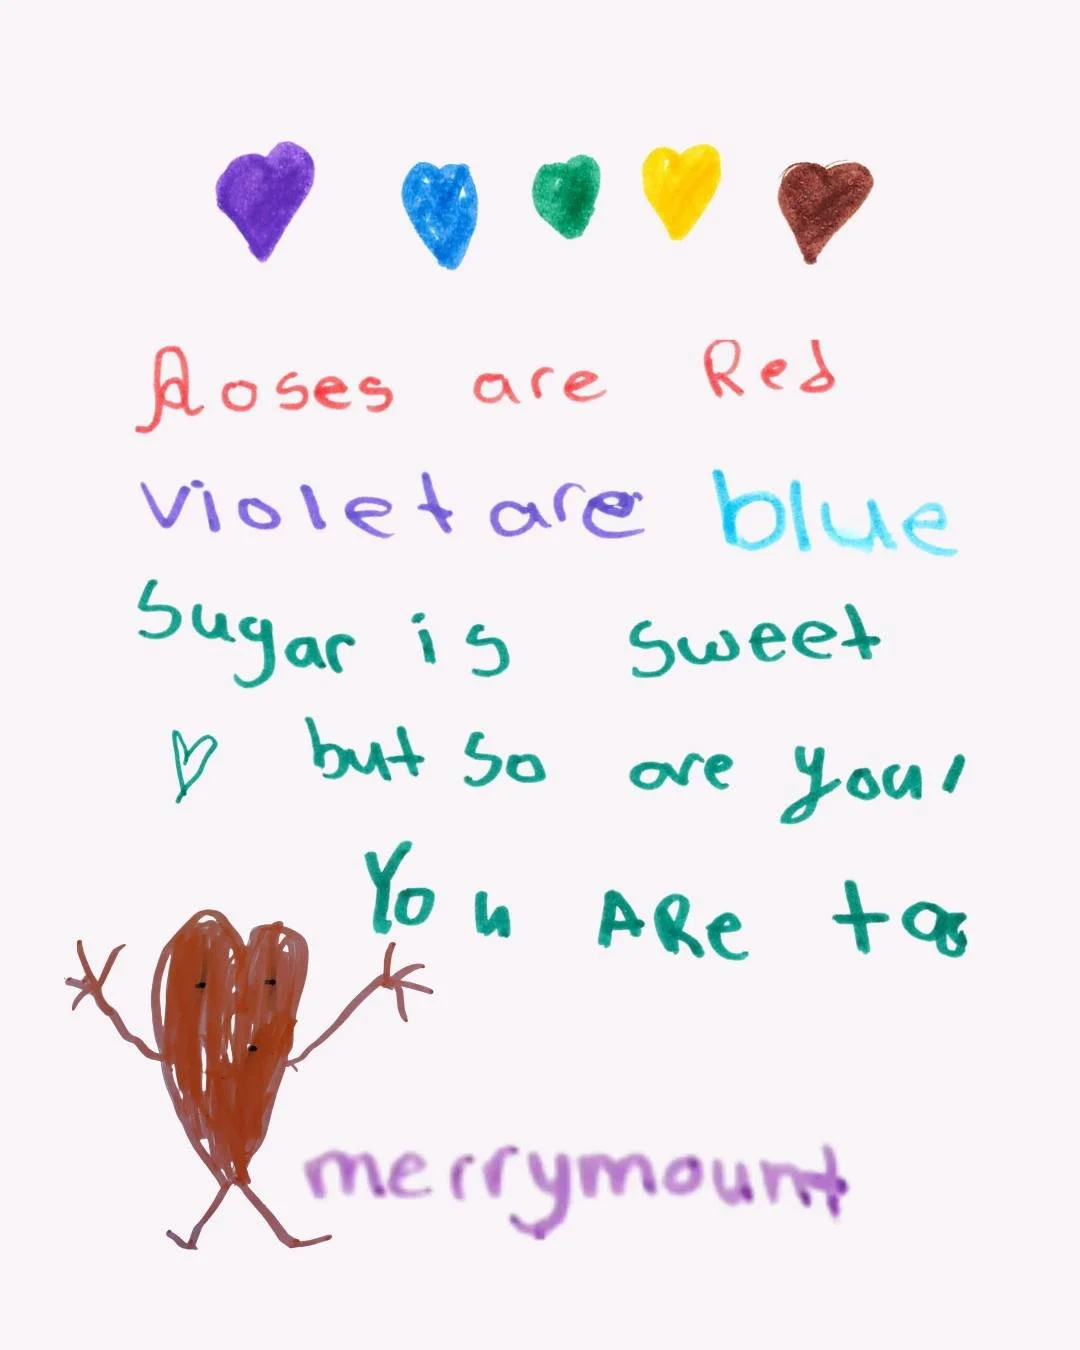 Roses are Red
violet are blue
Sugar is sweet
but so are you!
You ARe too
merrymount